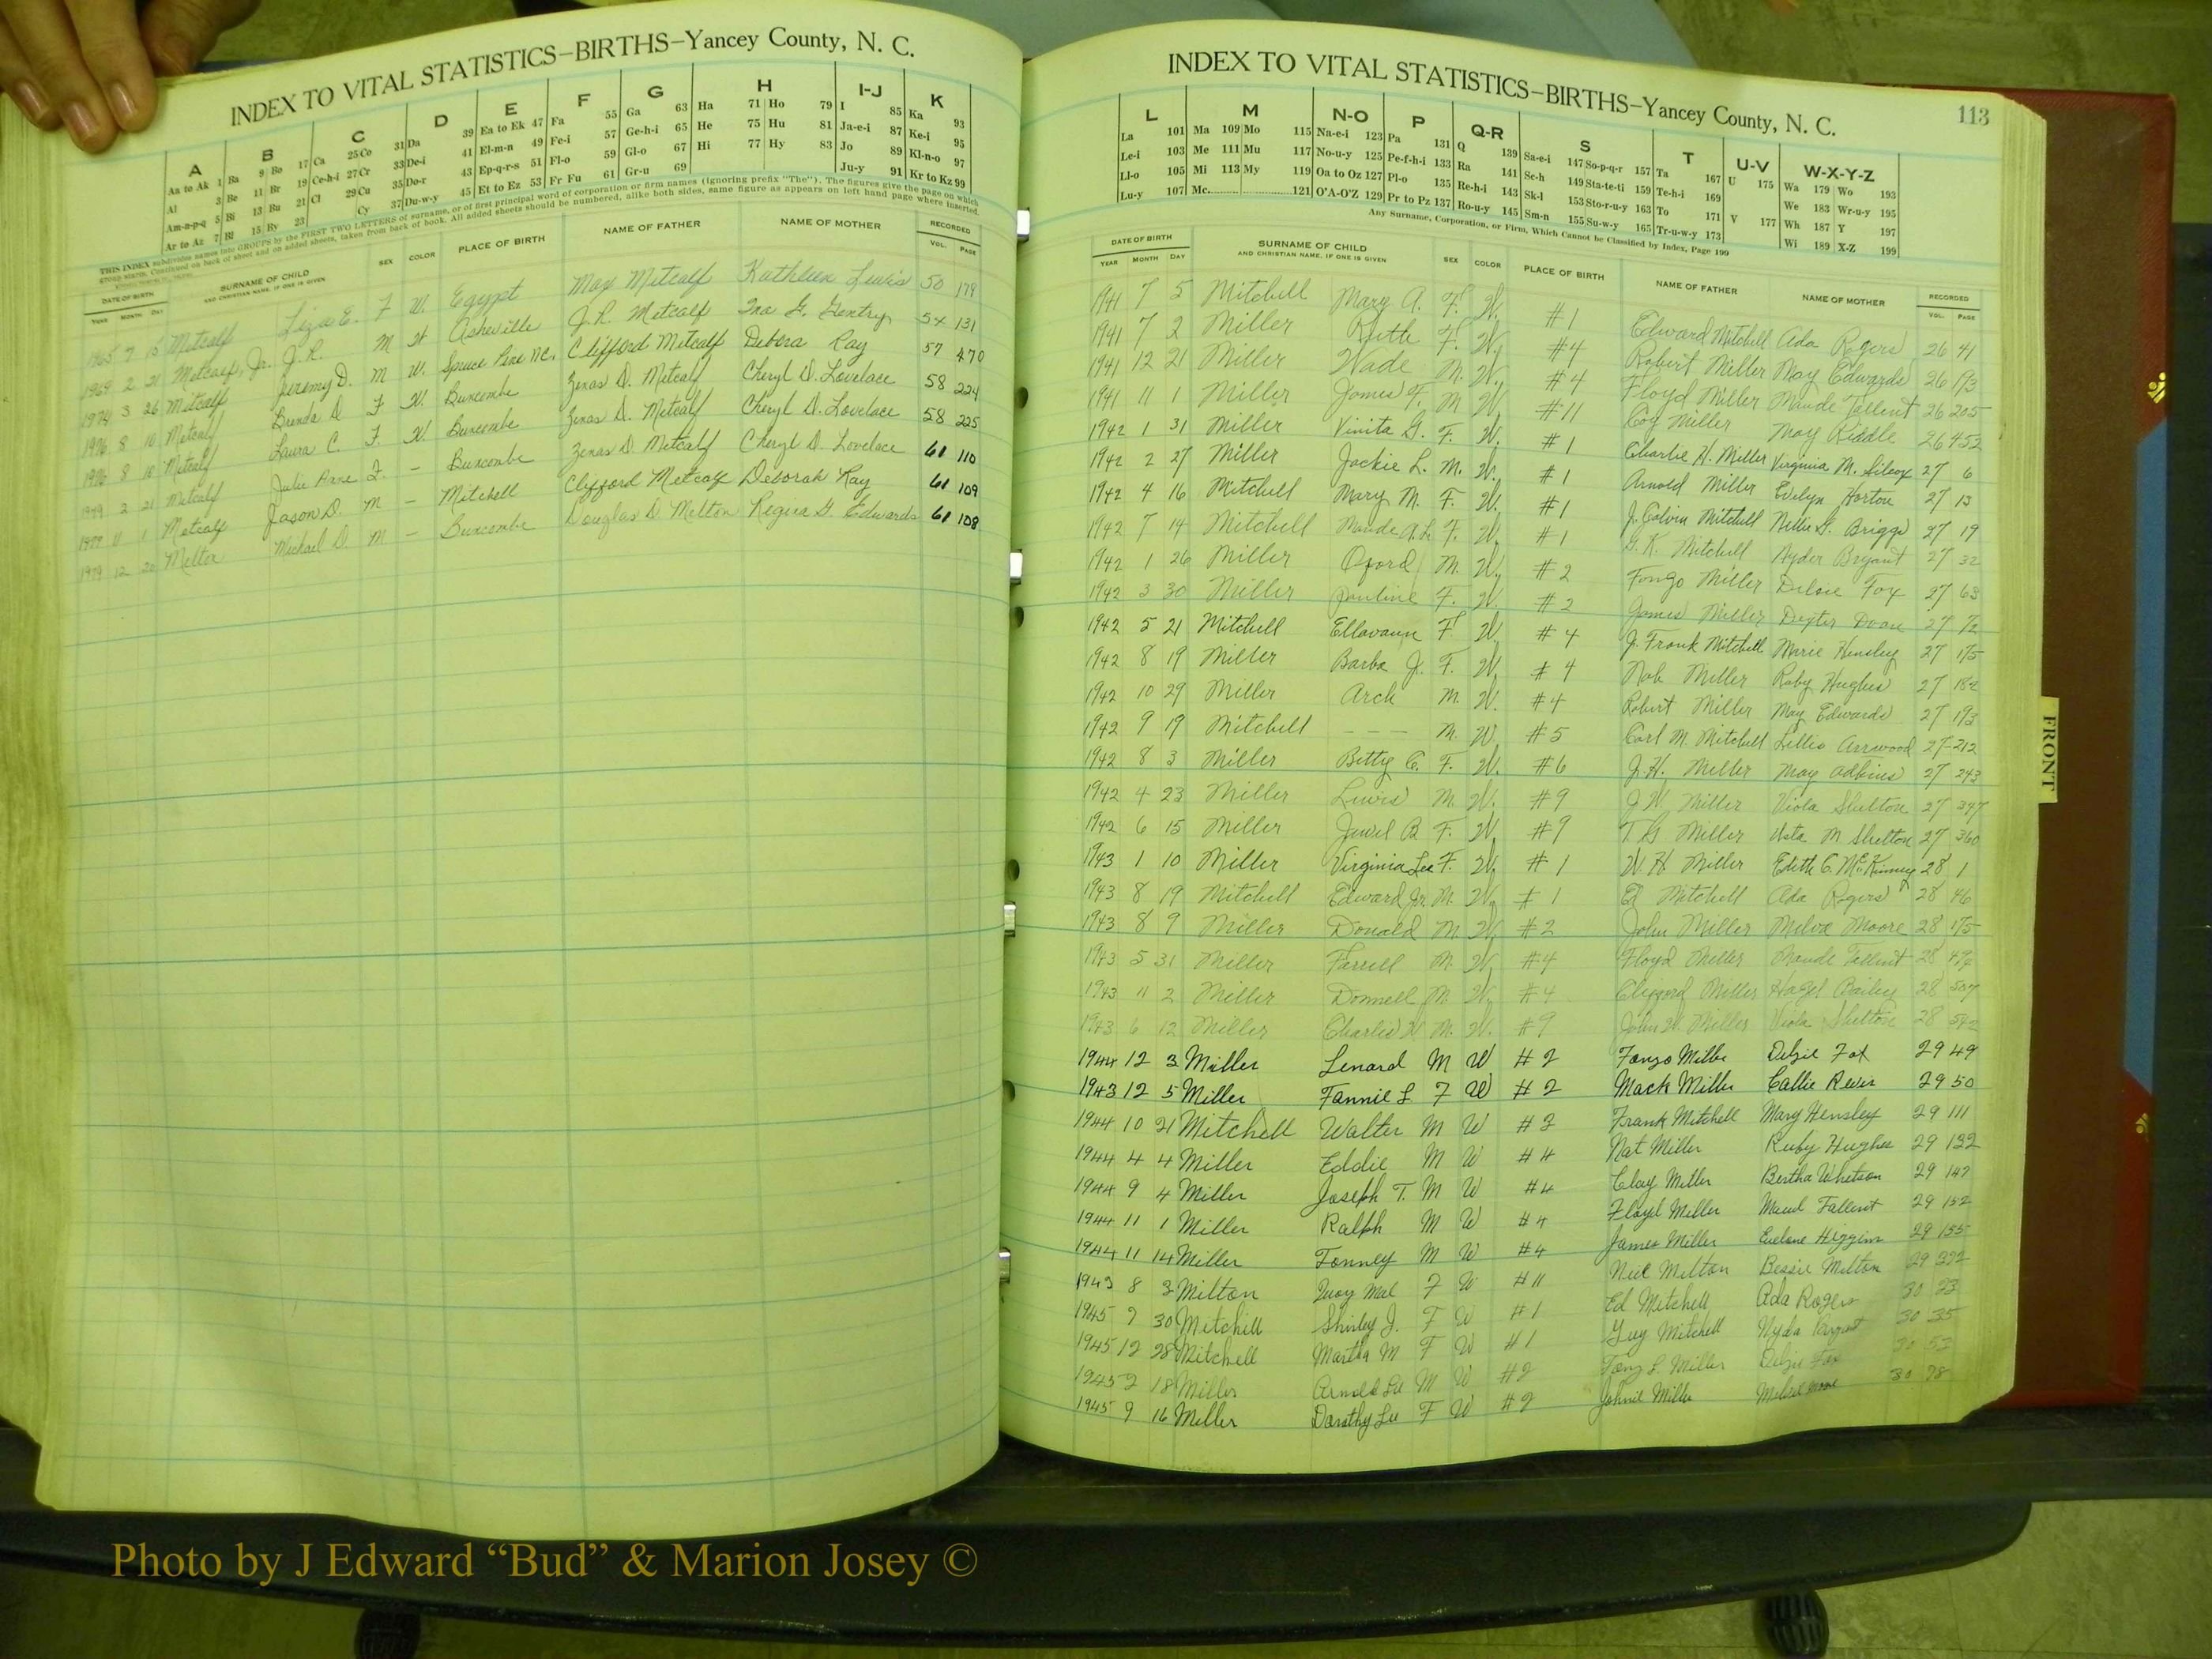 INDEX TO VITAL STATISTICS–BIRTHS–Yancey County, N. C.
A B C D E F G H I-J K
Aa to Ak 1 Ba 9 Bo 17 Ca 25 Co 31 Da 39 Ea to Ek 47 Fa 55 Ga 63 Ha 71 Ho 79 I 85 Ka 93
Al 3 Be 11 Br 19 Ce-h-i 27 Cr 33 De-i 41 El-m-n 49 Fe-i 57 Ge-h-i 65 He 75 Hu 81 Ja-e-i 87 Ke-i 95
Am-n-p-q 5 Bi 13 Bu 21 Cl 29 Cu 35 Do-r 43 Ep-q-r-s 51 Fl-o 59 Gl-o 67 Hi 77 Hy 83 Jo 89 Kl-n-o 97
Ar to Az 7 Bl 15 By 23 Cy 37 Du-w-y 45 Et to Ez 53 Fr Fu 61 Gr-u 69 Ju-y 91 Kr to Kz 99
THIS INDEX subdivides names into GROUPS by the FIRST TWO LETTERS of surname, or of first principal word of corporation or firm names (ignoring prefix "The"). The figures give the page on which
group starts. Continued on back of sheet and on added sheets, taken from back of book. All added sheets should be numbered, alike both sides, same figure as appears on left hand page where inserted.
DATE OF BIRTH SURNAME OF CHILD SEX COLOR PLACE OF BIRTH NAME OF FATHER NAME OF MOTHER RECORDED
YEAR MONTH DAY AND CHRISTIAN NAME, IF ONE IS GIVEN VOL. PAGE
1965 7 15 Metcalf Liza E. F W. Egypt Max Metcalf Kathleen Lewis 50 179
1969 2 21 Metcalf, Jr. J.R. M W Asheville J.R. Metcalf Ina G. Gentry 54 131
1974 3 26 Metcalf Jeremy D. M W. Spruce Pine N.C. Clifford Metcalf Debora Ray 57 470
1976 8 10 Metcalf Brenda D F W. Buncombe Zenas D. Metcalf Cheryl D. Lovelace 58 224
1976 8 10 Metcalf Laura C. F. W. Buncombe Zenas D. Metcalf Cheryl D. Lovelace 58 225
1979 2 21 Metcalf Julie Anne F. – Buncombe Zenas D Metcalf Cheryl D. Lovelace 61 110
1979 11 1 Metcalf Jason D. M – Mitchell Clifford Metcalf Deborah Ray 61 109
1979 12 Melton Michael D. M – Buncombe Douglas D Melton Regina G. Edwards 61 108
INDEX TO VITAL STATISTICS–BIRTHS–Yancey County, N. C. 113
L M N-O P Q-R S T U-V W-X-Y-Z
La 101 Ma 109 Mo 115 Na-e-i 123 Pa 131 Q 139 Sa-e-i 147 So-p-q-r 157 Ta 167 U 175 Wa 179 Wo 193
Le-i 103 Me 111 Mu 117 No-u-y 125 Pe-f-h-i 133 Ra 141 Sc-h 149 Sta-te-ti 159 Te-h-i 169 We 183 Wr-u-y 195
Ll-o 105 Mi 113 My 119 Oa to Oz 127 Pl-o 135 Re-h-i 143 Sk-l 153 Sto-r-u-y 163 To 171 V 177 Wh 187 Y 197
Lu-y 107 Mc 121 O'A-O'Z 129 Pr to Pz 137 Ro-u-y 145 Sm-n 155 Su-w-y 165 Tr-u-w-y 173 Wi 189 X-Z 199
Any Surname, Corporation, or Firm, Which Cannot be Classified by Index, Page 199
DATE OF BIRTH SURNAME OF CHILD SEX COLOR PLACE OF BIRTH NAME OF FATHER NAME OF MOTHER RECORDED
YEAR MONTH DAY AND CHRISTIAN NAME, IF ONE IS GIVEN VOL. PAGE
1941 7 5 Mitchell Mary A. F. W. #1 Edward Mitchell Ada Rogers 26 41
1941 7 2 Miller Ruth F. W. #4 Robert Miller May Edwards 26 193
1941 12 21 Miller Wade M. W. #4 Floyd Miller Maude Tallent 26 205
1941 11 1 Miller James F. M W. #11 Coy Miller May Riddle 26 452
1942 1 31 Miller Vinita G. F. W. #1 Charlie H. Miller Virginia M. Silcox 27 6
1942 2 27 Miller Jackie L. M. W. #1 Arnold Miller Evelyn Horton 27 13
1942 4 16 Mitchell Mary M. F. W. #1 J. Colvin Mitchell Nellie G. Briggs 27 19
1942 7 14 Mitchell Maude A.L. F. W. #1 G. K. Mitchell Ayder Bryant 27 32
1942 1 26 Miller Oford M. W. #2 Fongo Miller Delsie Fox 27 63
1942 3 30 Miller Pauline F. W. #2 James Miller Dexter Doan 27 72
1942 5 21 Mitchell Ellavaun F W. #4 J. Frank Mitchell Marie Hensley 27 175
1942 8 19 Miller Barba J. F. W. #4 Nob Miller Ruby Hughes 27 182
1942 10 29 Miller Arch M. W. #4 Robert Miller May Edwards 27 193
1942 9 19 Mitchell – – – M. W. #5 Carl M. Mitchell Lillie Arrwood 27 212
1942 8 3 Miller Betty C. F. W. #6 J.H. Miller May Adkins 27 243
1942 4 23 Miller Lewis M. W. #9 J W. Miller Viola Shelton 27 347
1942 6 15 Miller Jewel B F. W. #9 T.G Miller Usta M Shelton 27 360
1943 1 10 Miller Virginia Lee F. W. #1 W. H Miller Edith C. McKinney 28 1
1943 8 19 Mitchell Edward Jr. M. W. #1 Ed Mitchell Ada Rogers 28 46
1943 8 9 Miller Donald M W. #2 John Miller Melva Moore 28 175
1943 5 31 Miller Farrell M. W. #4 Floyd Miller Maude Tallent 28
1943 11 2 Miller Donnell M. W. #4 Clifford Miller Hazel Bailey 28 507
1943 6 12 Miller Charlie W M. W. #9 John W. Miller Viola Shelton 28 592
1944 12 3 Miller Lenard M W #2 Fonzo Miller Delzie Fox 29 49
1943 12 5 Miller Fannie L F W #2 Mack Miller Callie Revis 29 50
1944 10 21 Mitchell Walter M W #3 Frank Mitchell Mary Hensley 29 111
1944 4 4 Miller Eddie M W #4 Nat Miller Ruby Hughes 29 132
1944 9 4 Miller Joseph T. M W #4 Clay Miller Bertha Whetson 29 147
1944 11 1 Miller Ralph M W #4 Floyd Miller Maud Tallent 29 152
1944 11 14 Miller Tonney M W #4 James Miller Evelone Higgins 29 155
1943 8 3 Milton Mal F W #11 Neil Milton Bessie Milton 29 322
1945 7 30 Mitchell Shirley J. F W #1 Ed Mitchell Ada Rogers 30 23
1945 12 28 Mitchell Martha M F W #1 Guy Mitchell Nyda 30 35
1945 2 18 Miller Arnold Lee M W #2 Tony L Miller Delzie Fox 30 53
1945 9 16 Miller Dorothy Lee F W #2 Johnie Miller 30 78
FRONT
Photo by J Edward “Bud” & Marion Josey ©